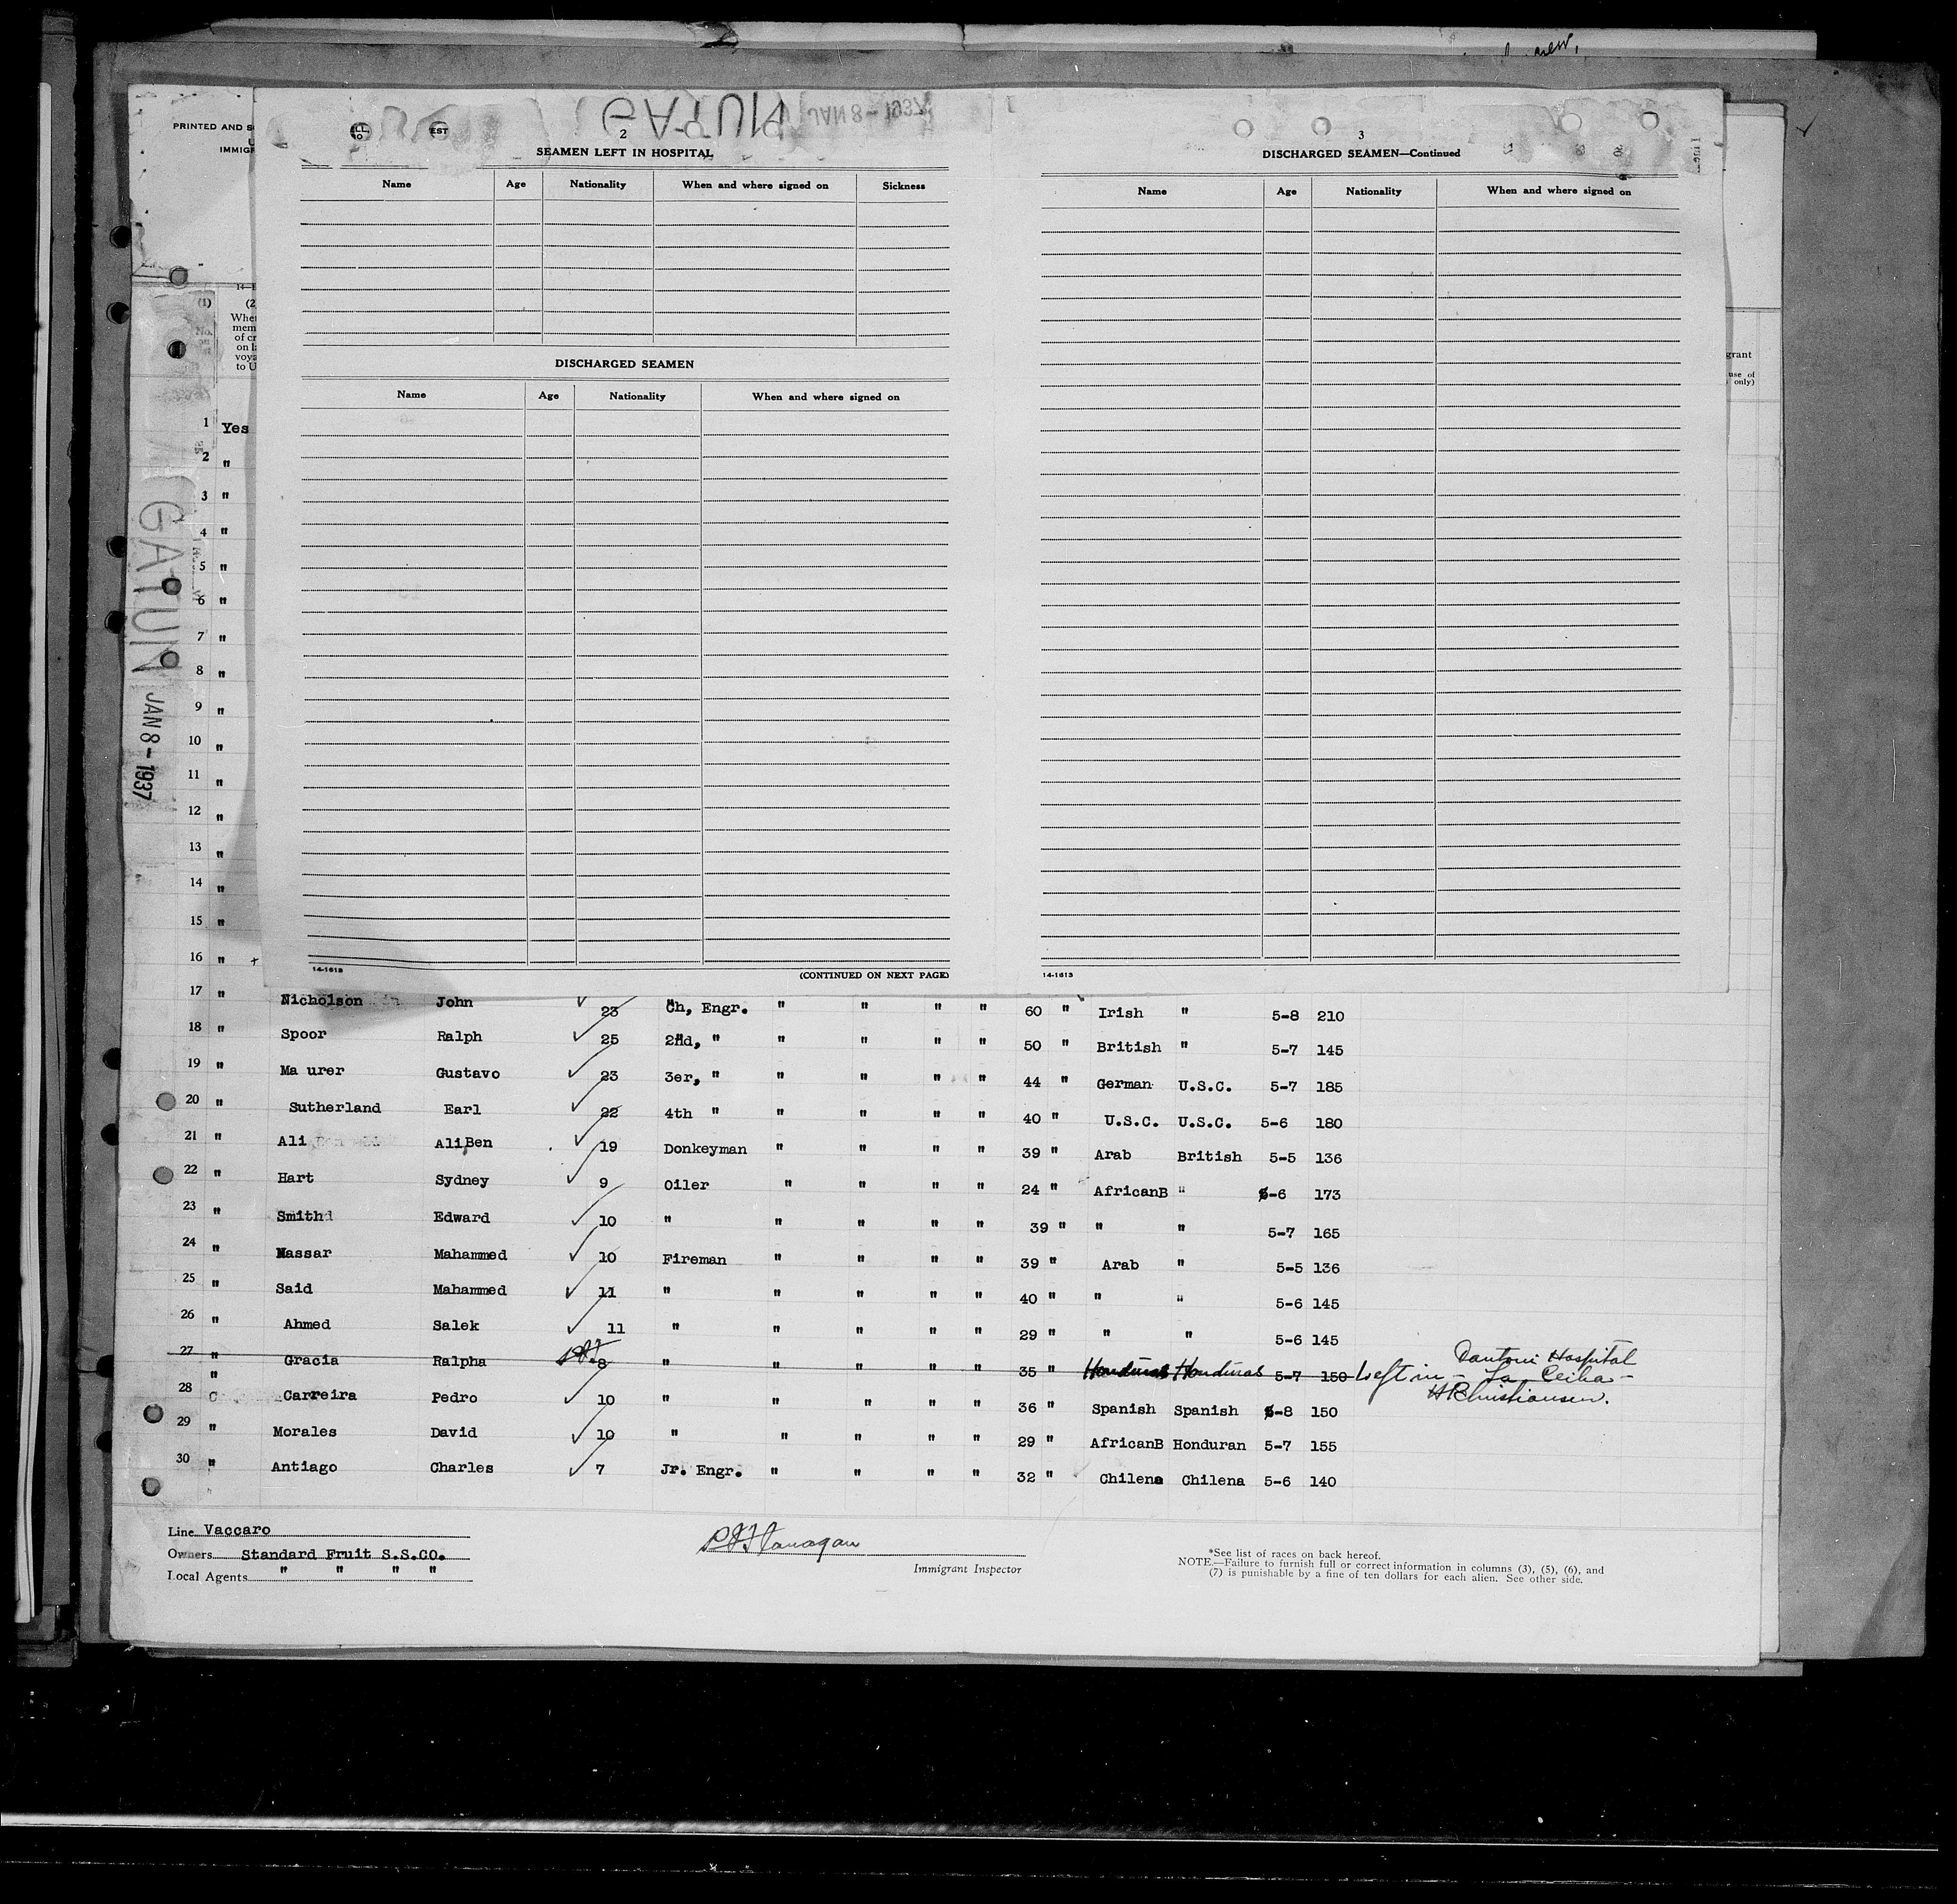 PRINTED AND S
IMMIGR
GATUN JAN 8 - 1937
2
SEAMEN LEFT IN HOSPITAL
Name Age Nationality When and where signed on Sickness
DISCHARGED SEAMEN
Name Age Nationality When and where signed on
14-1613 (CONTINUED ON NEXT PAGE)
3
DISCHARGED SEAMEN—Continued
Name Age Nationality When and where signed on
14-1613
grant
use of
only)
(1) (2
No.
Whet
mem
of cr
on l
voya
to U
GATUN JAN 8 - 1937
1 Yes
2 "
3 "
4 "
5 "
6 "
7 "
8 "
9 "
10 "
11 "
12 "
13 "
14 "
15 "
16 "
17 " Nicholson John 23 Ch, Engr. " " " " 60 " Irish " 5-8 210
18 " Spoor Ralph 25 2nd, " " " " " 50 " British " 5-7 145
19 " Ma urer Gustavo 23 3er, " " " " " 44 " German U.S.C. 5-7 185
20 " Sutherland Earl 22 4th " " " " " 40 " U.S.C. U.S.C. 5-6 180
21 " Ali Ali Ben 19 Donkeyman " " " " 39 " Arab British 5-5 136
22 " Hart Sydney 9 Oiler " " " " 24 " AfricanB " 5-6 173
23 " Smith Edward 10 " " " " " 39 " " " 5-7 165
24 " Nassar Mahammed 10 Fireman " " " " 39 " Arab " 5-5 136
25 " Said Mahammed 11 " " " " " 40 " " " 5-6 145
26 " Ahmed Salek 11 " " " " " 29 " " " 5-6 145
27 " Gracia Ralpha 8 " " " " " 35 " Honduras Honduras 5-7 150 Left in - Dantoni Hospital
La Ceiba -
H R Christiansen.
28 " Carreira Pedro 10 " " " " " 36 " Spanish Spanish 5-8 150
29 " Morales David 10 " " " " " 29 " AfricanB Honduran 5-7 155
30 " Antiago Charles 7 Jr. Engr. " " " " 32 " Chilena Chilena 5-6 140
Line Vaccaro
Owners Standard Fruit S.S.CO.
Local Agents " " " "
P J Flanagan
Immigrant Inspector
*See list of races on back hereof.
NOTE.—Failure to furnish full or correct information in columns (3), (5), (6), and
(7) is punishable by a fine of ten dollars for each alien. See other side.